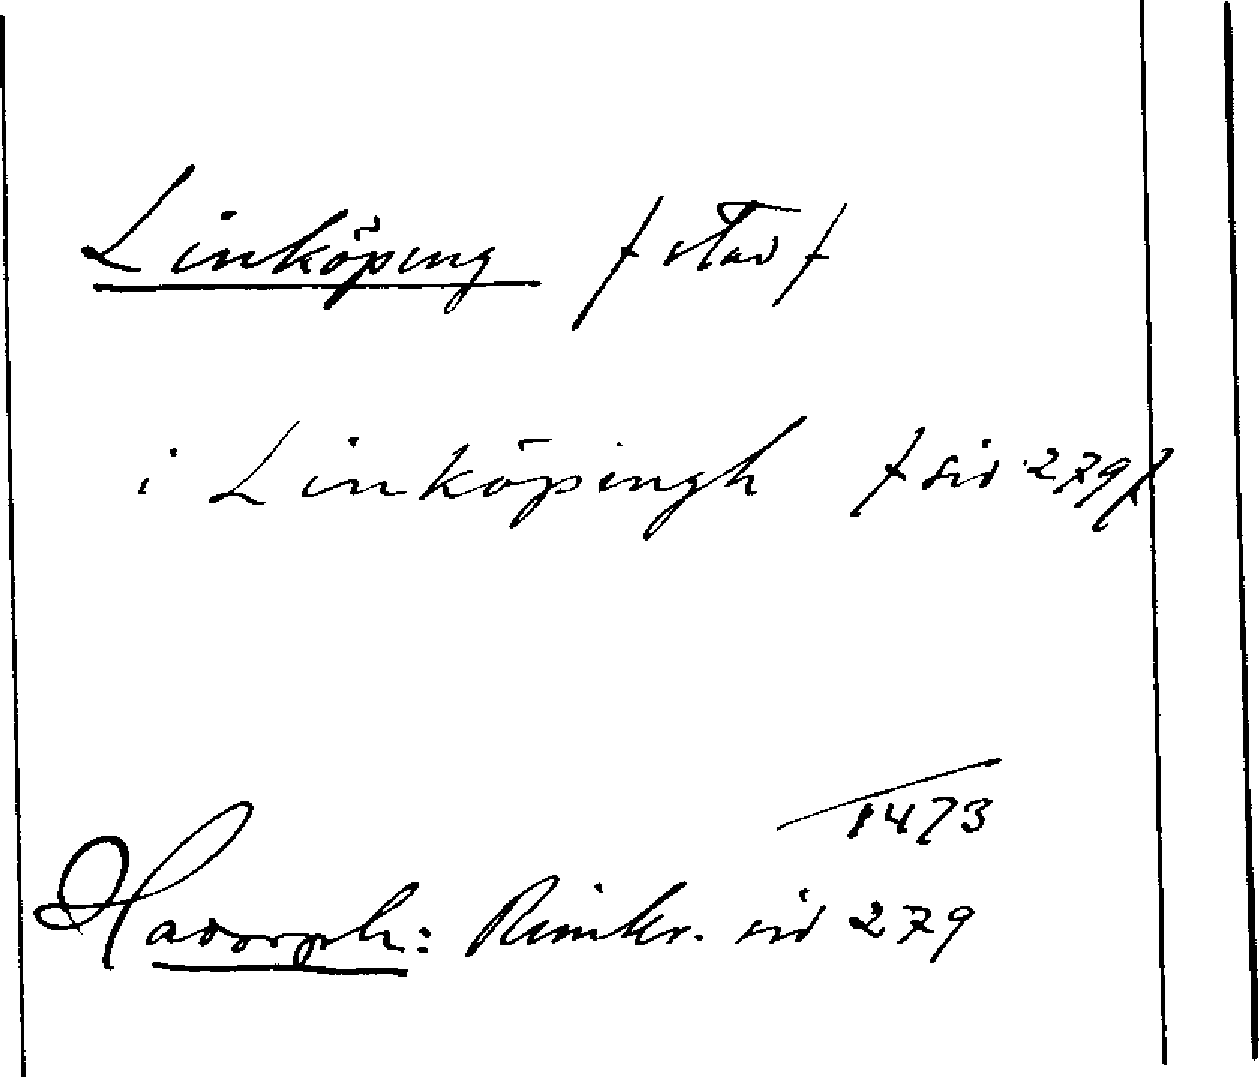 Linköping /stad/
i Linköpingh /sid 279/
1473
Hadorph: Rimkr. sid 279